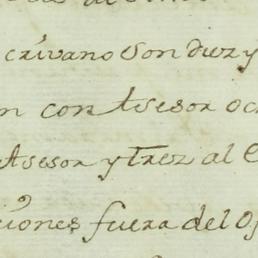 crivano son diez y
n con Asesor oc
Asesor y trez al E
ciones fuera del Of